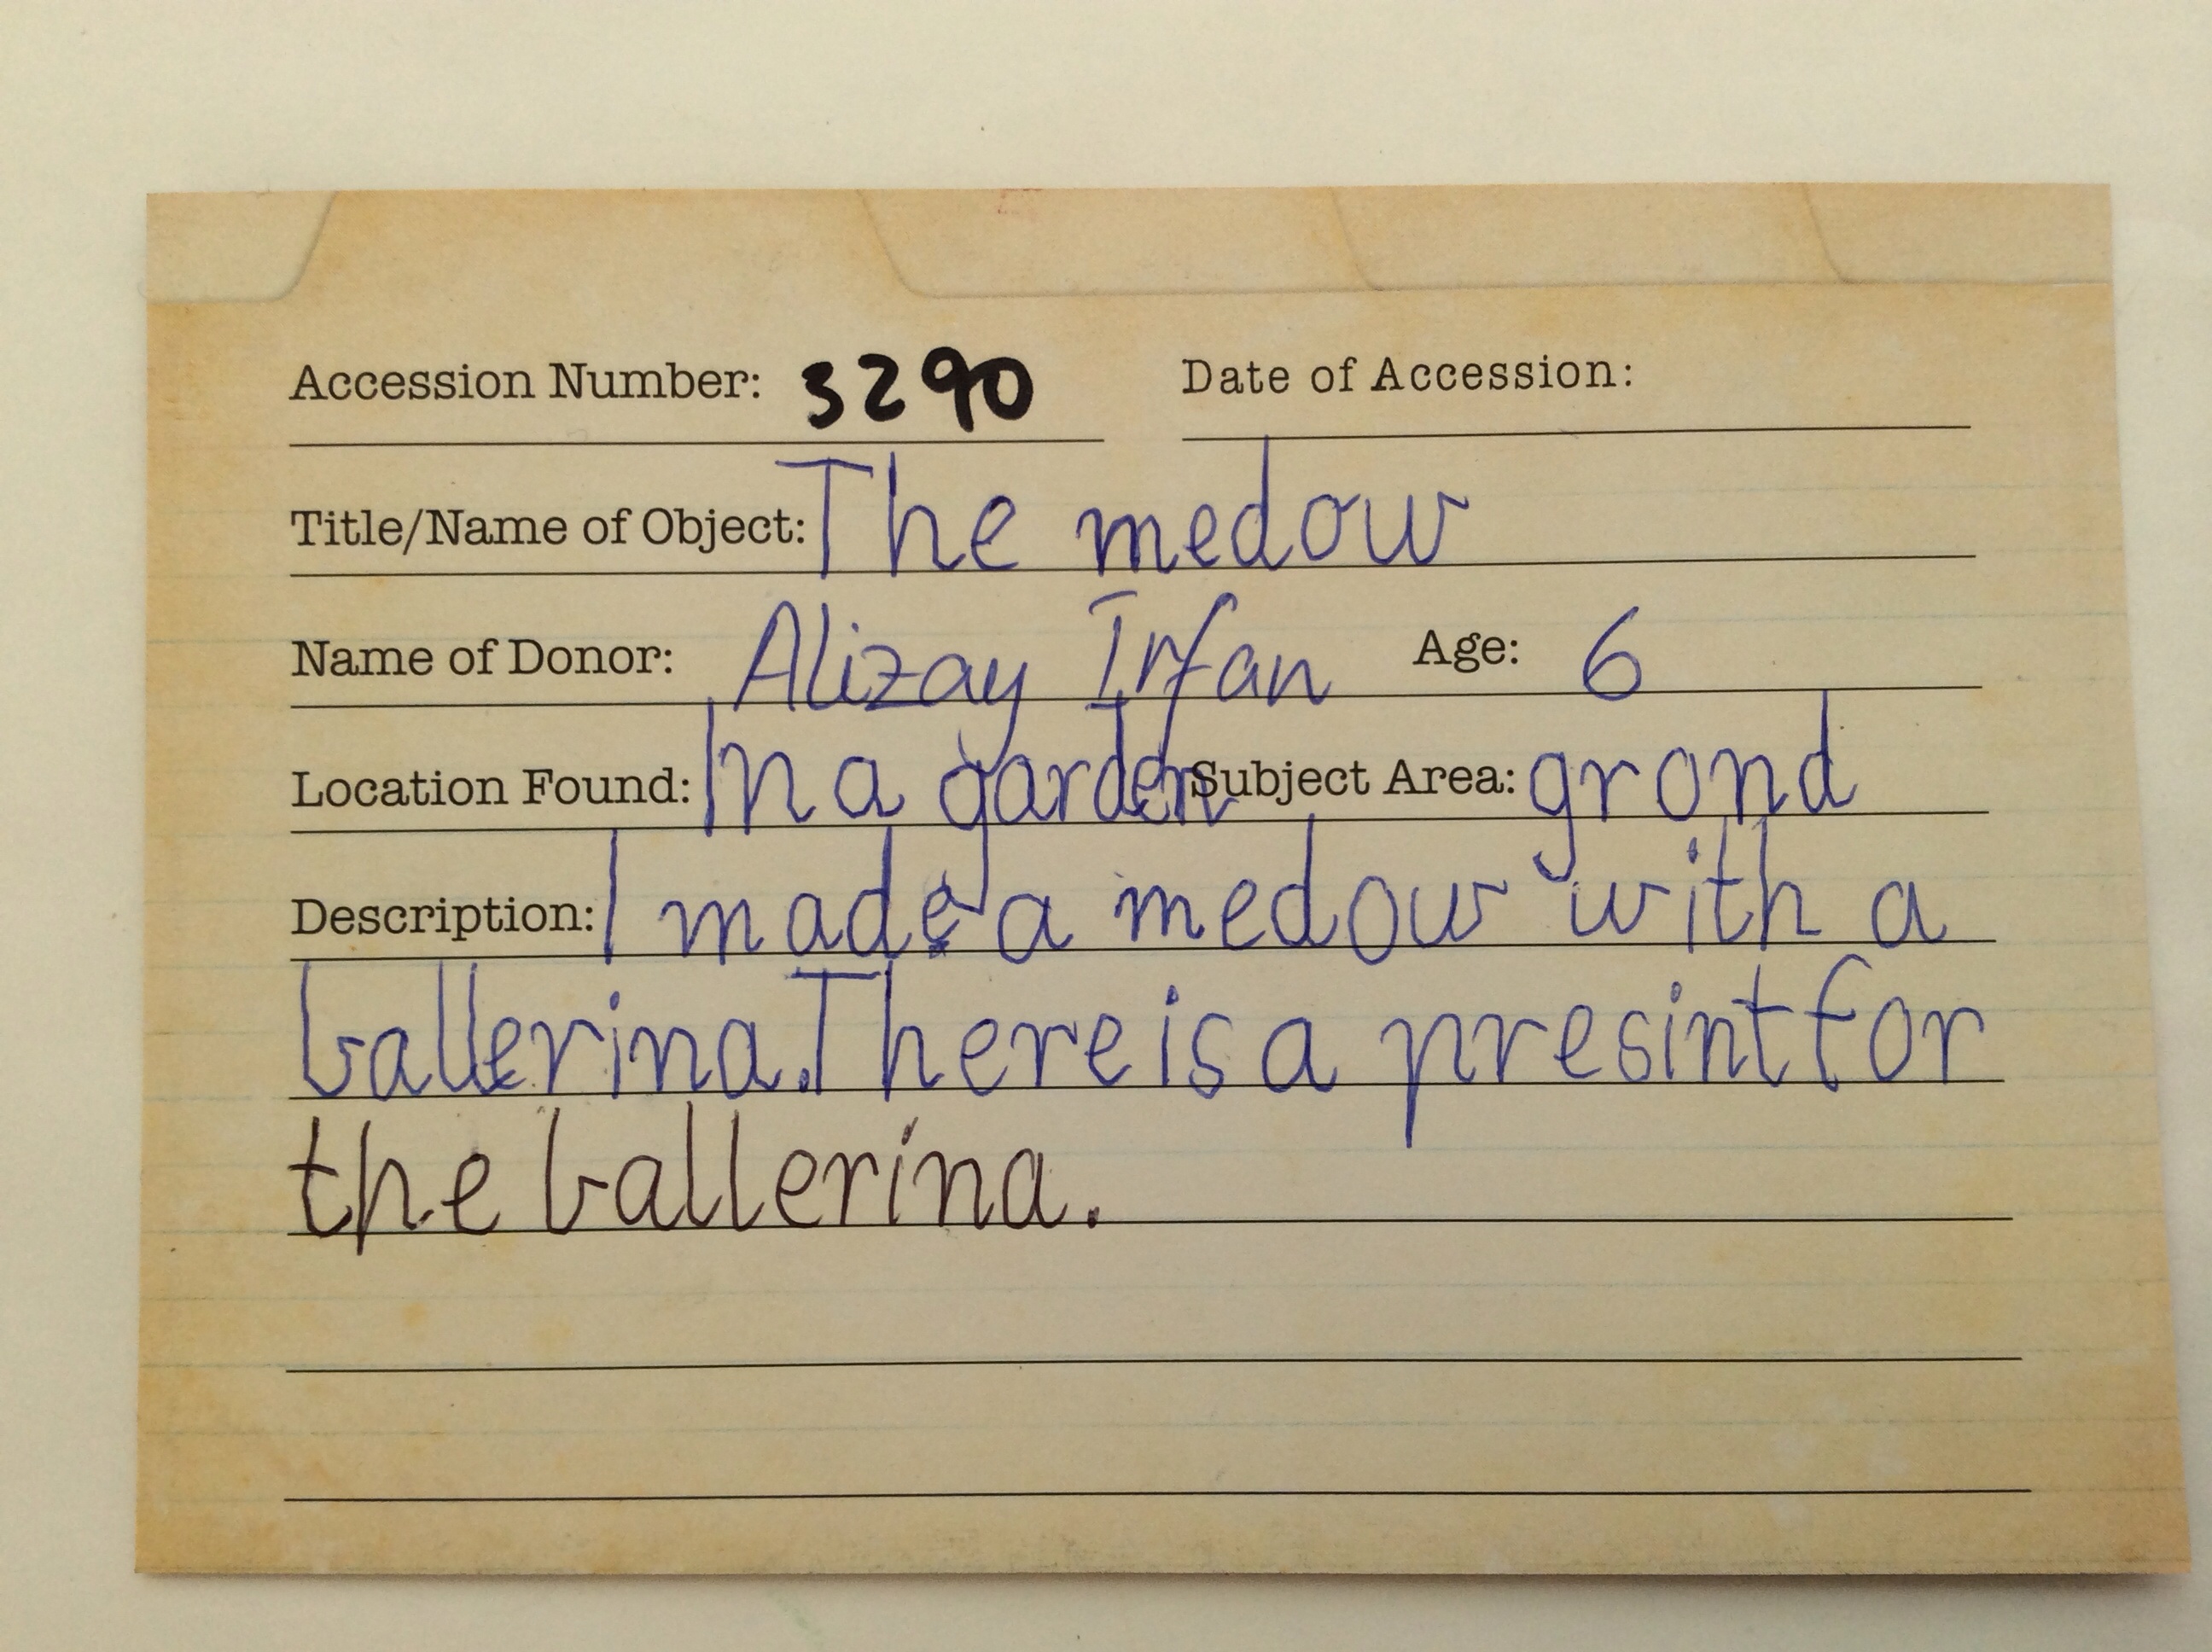 Accession Number: 3290 Date of Accession:
Title/Name of Object: The medow
Name of Donor: Alizay Irfan Age: 6
Location Found: In a garden Subject Area: grond
Description: I made a medow with a
ballerina. There is a presint for
the ballerina.